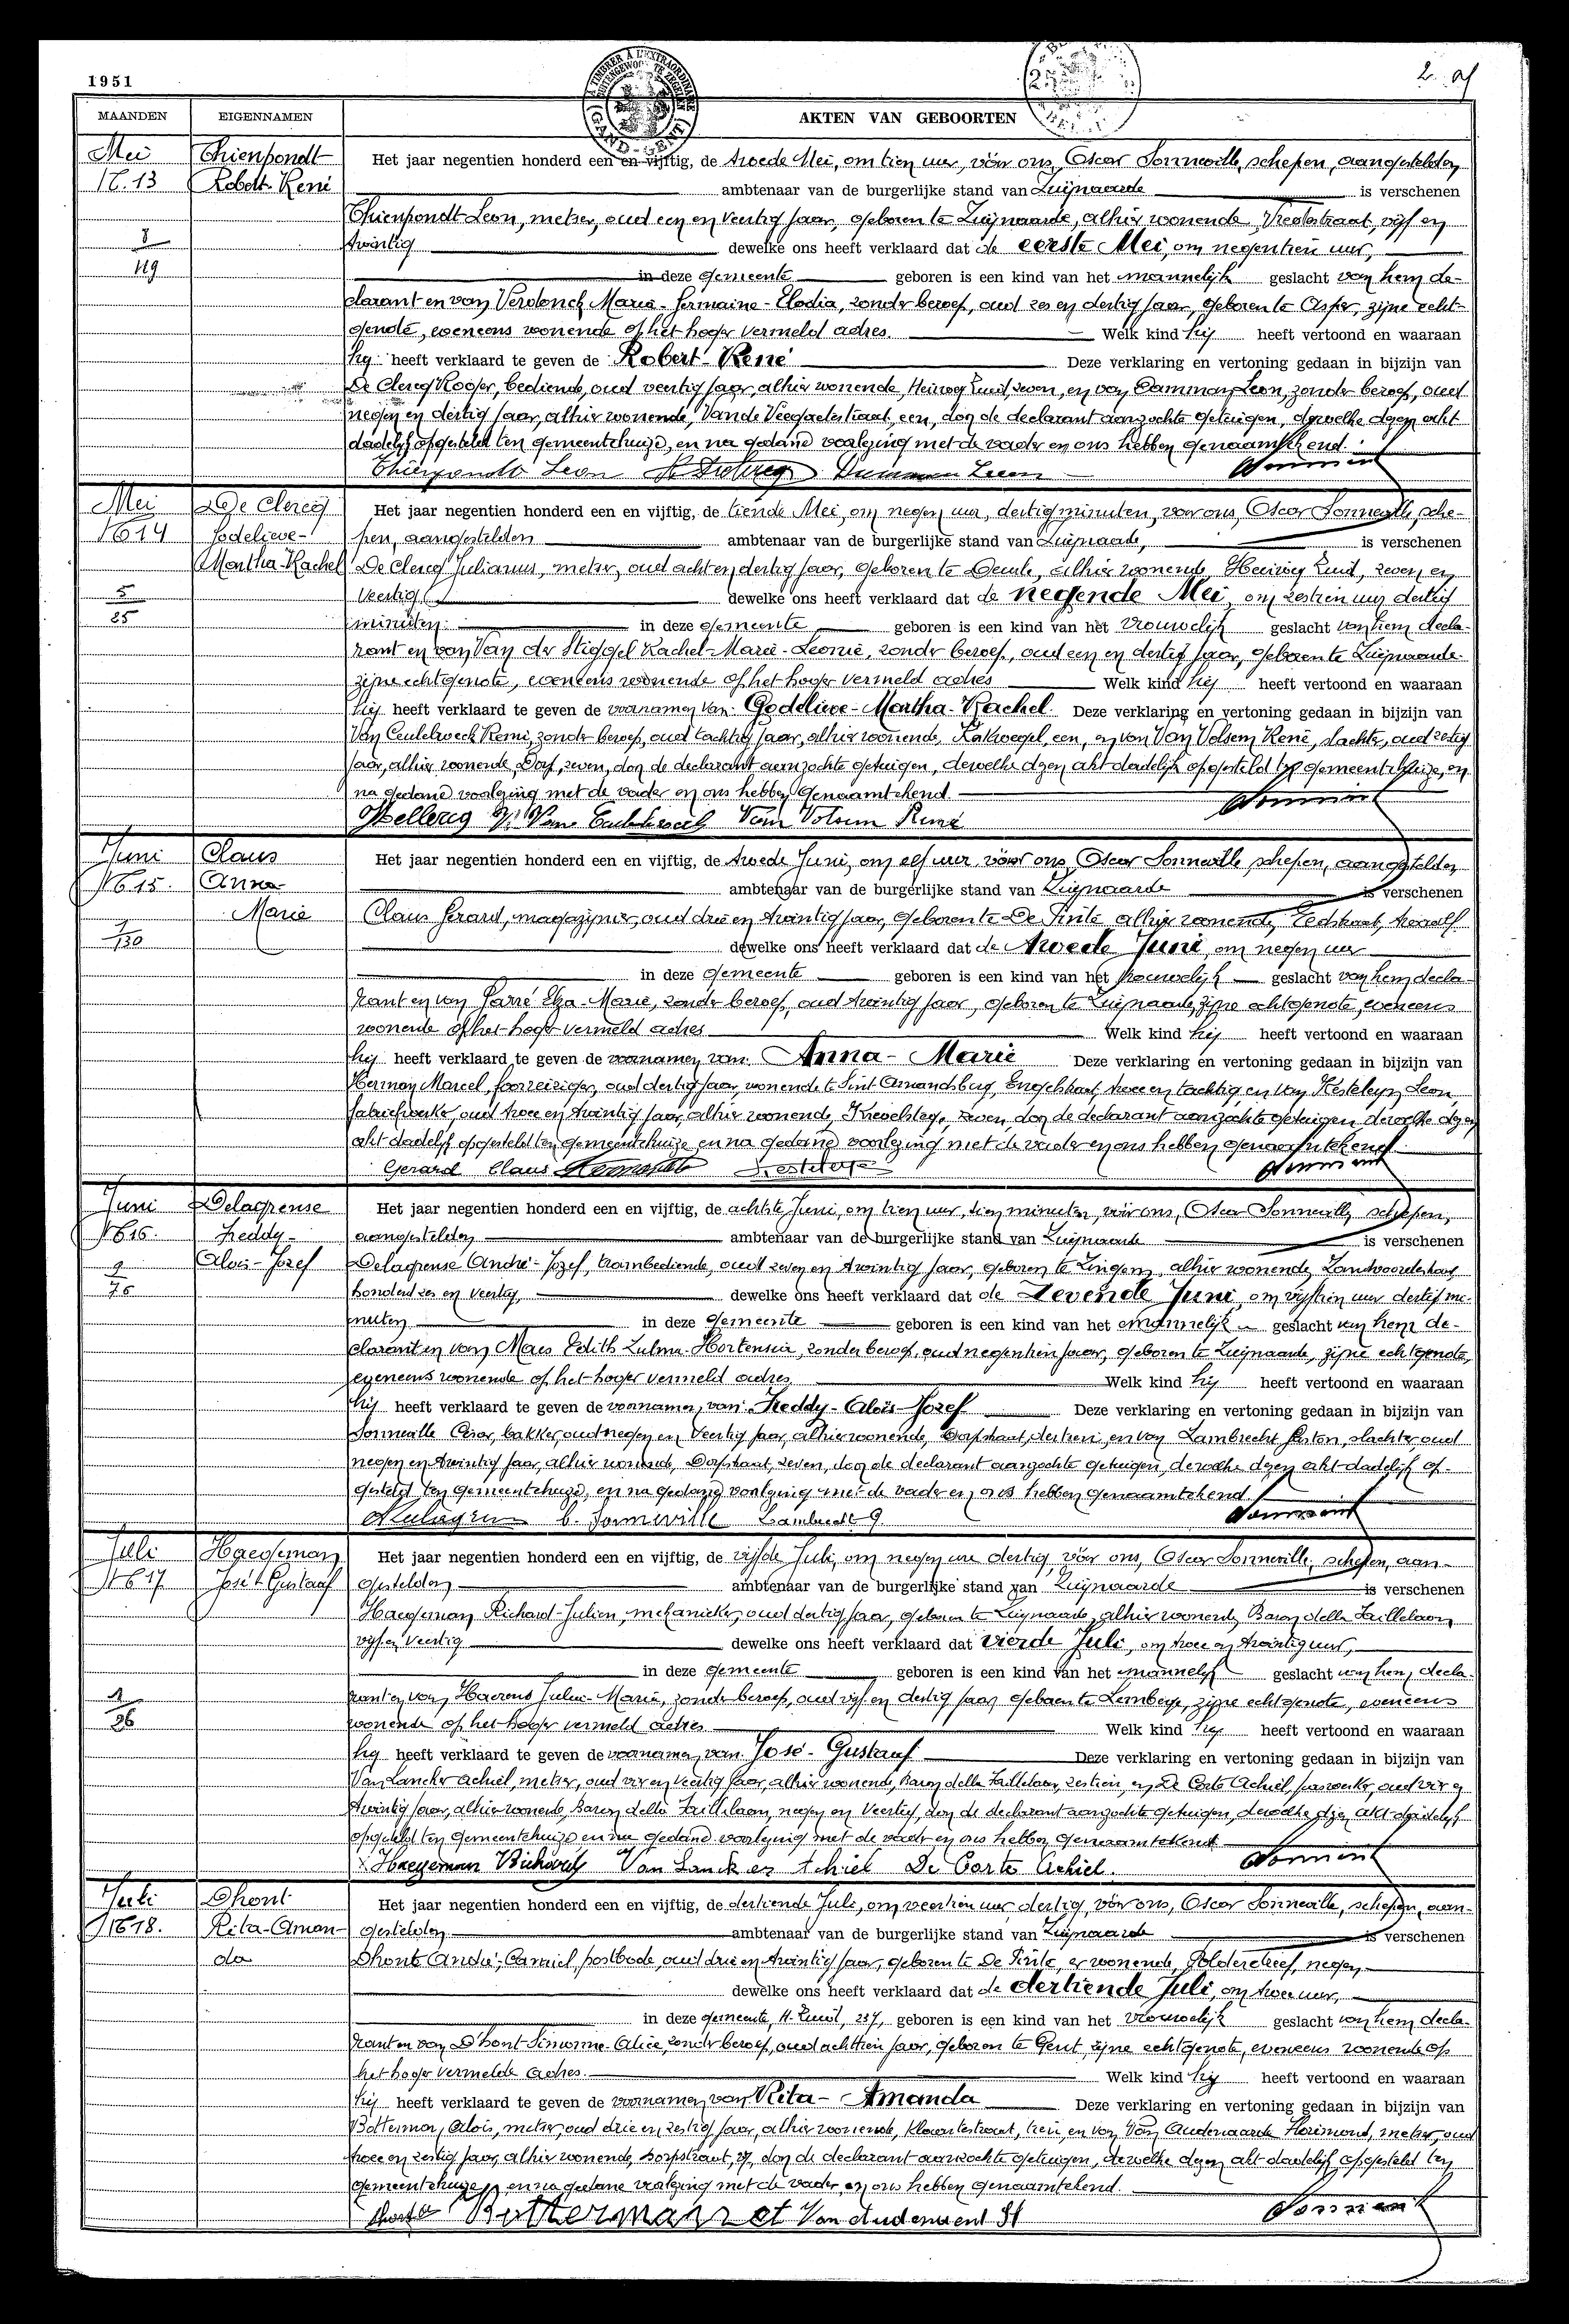 1951
2
MAANDEN EIGENNAMEN AKTEN VAN GEBOORTEN
A TIMBRER À L'EXTRAORDINAIRE
(GAND-GENT)
Mei Thienpondt Het jaar negentien honderd een en vijftig, de tweede Mei, om tien uur, vóór ons, Oscar Sonneville, schepen, aangestelden
N° 13 Robert-René ambtenaar van de burgerlijke stand van Zwijnaarde is verschenen
Thienpondt Leon, metser, oud een en veertig jaar, geboren te Zwijnaarde, alhier wonende, vijf en
8 twintig dewelke ons heeft verklaard dat de eerste Mei, om negentien uur,
119 in deze gemeente geboren is een kind van het mannelijk geslacht van hem de-
clarant en van Verdonck Maria-Germaine-Elodia, zonder beroep, oud zes en dertig jaar, geboren te Asper, zijne echt-
genote, eveneens wonende op het hoger vermeld adres. Welk kind hij heeft vertoond en waaraan
hij heeft verklaard te geven de Robert-René Deze verklaring en vertoning gedaan in bijzijn van
De Clercq Roger, bediende, oud veertig jaar, alhier wonende, Heirweg Zuid, zeven, en van Damman Leon, zonder beroep, oud
negen en dertig jaar, alhier wonende, een, door de declarant aanzochte getuigen, dewelke dezen akt
dadelijk opgesteld ten gemeentehuize, en na gedane voorlezing met de vader en ons hebben genaamtekend.
Thienpondt Leon Damman Leon
Mei De Clercq Het jaar negentien honderd een en vijftig, de tiende Mei, om negen uur, dertig minuten, voor ons, Oscar Sonneville, sche-
N° 14 Godelieve- pen, aangestelden ambtenaar van de burgerlijke stand van Zwijnaarde, is verschenen
Martha-Rachel De Clercq Julianus, metser, oud acht en dertig jaar, geboren te Deurle, alhier wonende Heirweg Zuid, zeven en
5 veertig dewelke ons heeft verklaard dat de negende Mei, om zestien uur dertig
25 minuten in deze gemeente geboren is een kind van het vrouwelijk geslacht van hem decla-
rant en van Van der Stiggel Rachel-Maria-Leonie, zonder beroep, oud een en dertig jaar, geboren te Zwijnaarde
zijne echtgenote, eveneens wonende op het hoger vermeld adres Welk kind hij heeft vertoond en waaraan
hij heeft verklaard te geven de voornamen van Godelieve-Martha-Rachel. Deze verklaring en vertoning gedaan in bijzijn van
Van Ceulebroeck Remi, zonder beroep, oud tachtig jaar, alhier wonende, een, en van Van Volsem René, slachter, oud zestig
jaar, alhier wonende, Dorp, zeven, door de declarant aanzochte getuigen, dewelke dezen akt dadelijk opgesteld ten gemeentehuize, en
na gedane voorlezing met de vader en ons hebben genaamtekend.
Van Volsem René
Juni Claus Het jaar negentien honderd een en vijftig, de tweede Juni, om elf uur, vóór ons, Oscar Sonneville, schepen, aangestelden
N° 15. Anna- ambtenaar van de burgerlijke stand van Zwijnaarde is verschenen
Marie Claus Gerard, magazijnier, oud drie en twintig jaar, geboren te De Pinte, alhier wonende, twaalf
1 dewelke ons heeft verklaard dat de tweede Juni, om negen uur
130 in deze gemeente geboren is een kind van het vrouwelijk geslacht van hem decla-
rant en van Elza-Marie, zonder beroep, oud twintig jaar, geboren te Zwijnaarde, zijne echtgenote, eveneens
wonende op het hoger vermeld adres Welk kind hij heeft vertoond en waaraan
hij heeft verklaard te geven de voornamen van Anna-Marie Deze verklaring en vertoning gedaan in bijzijn van
Herman Marcel, oud dertig jaar, wonende te Sint Amandsberg, Engelstraat, twee en tachtig, en van Kesteleyn Leon,
fabriekwerker, oud twee en twintig jaar, alhier wonende, zeven, door de declarant aanzochte getuigen, dewelke dezen
akt dadelijk opgesteld ten gemeentehuize, en na gedane voorlezing met de vader en ons hebben genaamtekend.
Gerard Claus
Juni Delagrense Het jaar negentien honderd een en vijftig, de achtste Juni, om tien uur, tien minuten, vóór ons, Oscar Sonneville, schepen,
N° 16. Freddy- aangestelden ambtenaar van de burgerlijke stand van Zwijnaarde is verschenen
Aloïs-Jozef Delagrense André-Jozef, trambediende, oud zeven en twintig jaar, geboren te Zingem, alhier wonende,
9 honderd zes en veertig, dewelke ons heeft verklaard dat de Zevende Juni, om vijftien uur dertig mi-
76 nuten in deze gemeente geboren is een kind van het mannelijk geslacht van hem de-
clarant en van Maes Edith Zulma-Hortensia, zonder beroep, oud negentien jaar, geboren te Zwijnaarde, zijne echtgenote,
eveneens wonende op het hoger vermeld adres Welk kind hij heeft vertoond en waaraan
hij heeft verklaard te geven de voornamen van Freddy-Aloïs-Jozef Deze verklaring en vertoning gedaan in bijzijn van
Sonneville Cesar, bakker, oud negen en veertig jaar, alhier wonende, Dorpstraat, dertien, en van Lambrecht Gaston, slachter, oud
negen en twintig jaar, alhier wonende, Dorpstraat, zeven, door de declarant aanzochte getuigen, dewelke dezen akt dadelijk op-
gesteld ten gemeentehuize, en na gedane voorlezing met de vader en ons hebben genaamtekend
C. Sonneville Lambrecht G.
Juli Haegeman Het jaar negentien honderd een en vijftig, de vijfde Juli, om negen uur dertig, vóór ons, Oscar Sonneville, schepen, aan-
N° 17 José-Gustaaf gestelden ambtenaar van de burgerlijke stand van Zwijnaarde is verschenen
Haegeman Richard-Julien, mekanieker, oud dertig jaar, geboren te Zwijnaarde, alhier wonende, Baron della Faillelaan,
vijf en veertig dewelke ons heeft verklaard dat vierde Juli, om twee en twintig uur,
in deze gemeente geboren is een kind van het mannelijk geslacht van hem, decla-
1 rant en van Haerens Julia-Maria, zonder beroep, oud vijf en dertig jaar, geboren te Lemberge, zijne echtgenote, eveneens
26 wonende op het hoger vermeld adres Welk kind hij heeft vertoond en waaraan
hij heeft verklaard te geven de voornamen van José-Gustaaf Deze verklaring en vertoning gedaan in bijzijn van
Van Lancker Achiel, metser, oud vier en veertig jaar, alhier wonende, Baron della Faillelaan, zestien, en De Corte Achiel, oud vier en
twintig jaar, alhier wonende, Baron della Faillelaan, negen en veertig, door de declarant aanzochte getuigen, dewelke dezen akt dadelijk
opgesteld ten gemeentehuize en na gedane voorlezing met de vader en ons hebben genaamtekend
Haegeman Richard Van Lancker Achiel De Corte Achiel.
Juli Dhont Het jaar negentien honderd een en vijftig, de dertiende Juli, om veertien uur, dertig, vóór ons, Oscar Sonneville, schepen, aan-
N° 18. Rita-Aman- gestelden ambtenaar van de burgerlijke stand van Zwijnaarde is verschenen
da Dhont André-Camiel, postbode, oud drie en twintig jaar, geboren te De Pinte, er wonende, Polderdreef, negen,
dewelke ons heeft verklaard dat de dertiende Juli, om twee uur,
in deze gemeente, H. Zuid, 237, geboren is een kind van het vrouwelijk geslacht van hem decla-
rant en van D'hont Simonne-Alice, zonder beroep, oud achttien jaar, geboren te Gent, zijne echtgenote, eveneens wonende op
het hoger vermelde adres. Welk kind hij heeft vertoond en waaraan
hij heeft verklaard te geven de voornamen van Rita-Amanda Deze verklaring en vertoning gedaan in bijzijn van
Botterman, Aloïs, metser, oud drie en zestig jaar, alhier wonende, tien, en van Van Audenaarde Florimond, metser, oud
twee en zestig jaar, alhier wonende, Dorpstraat, 27, door de declarant aanzochte getuigen, dewelke dezen akt dadelijk opgesteld ten
gemeentehuize, en na gedane voorlezing met de vader, en ons hebben genaamtekend.